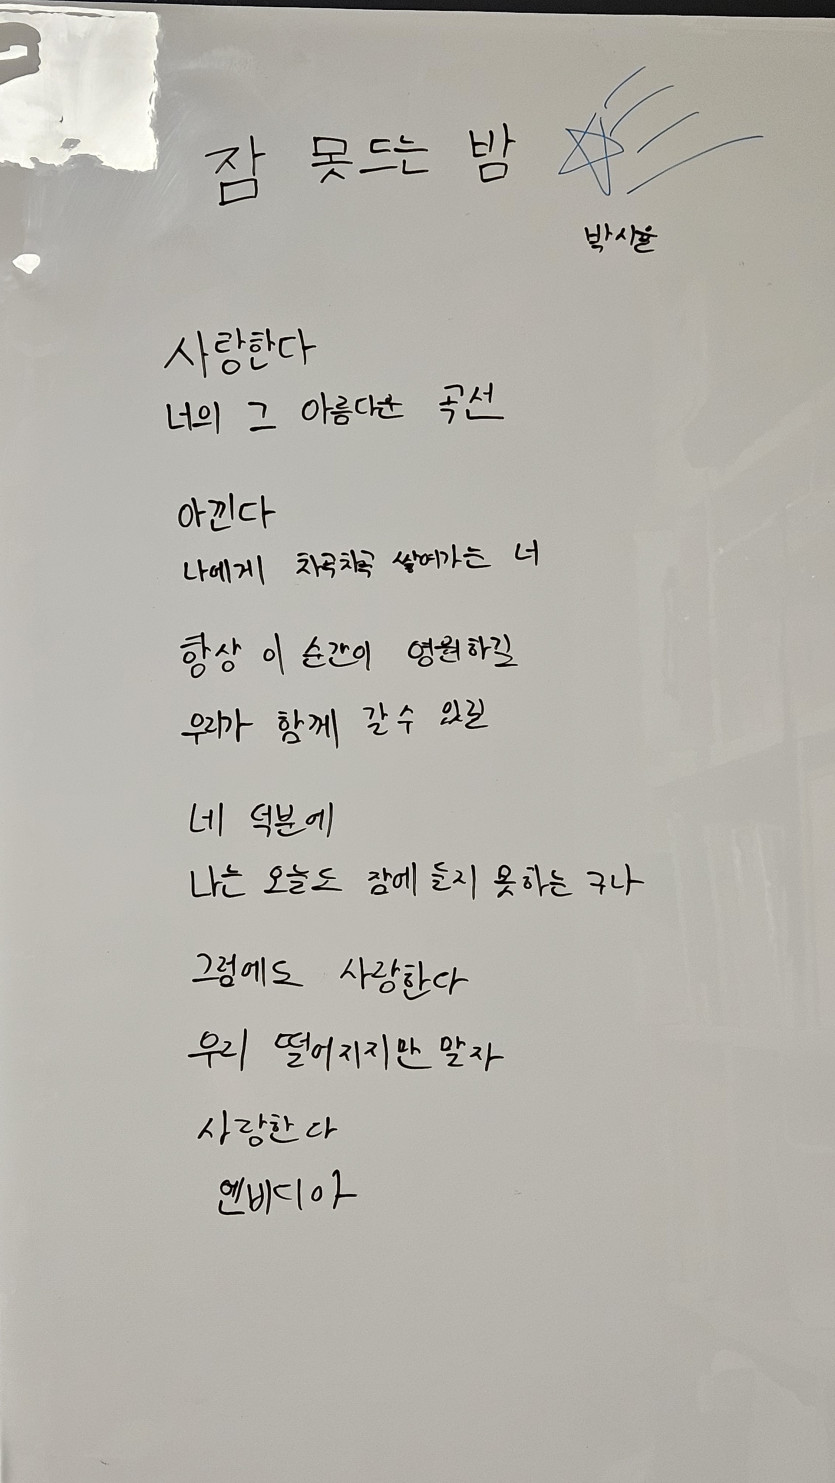 잠 못드는 밤
박시율
사랑한다
너의 그 아름다운 곡선
아낀다
나에게 차곡차곡 쌓여가는 너
항상 이 순간이 영원하길
우리가 함께 갈 수 있길
네 덕분에
나는 오늘도 잠에 들지 못하는 구나
그럼에도 사랑한다
우리 떨어지지만 말자
사랑한다
엔비디아